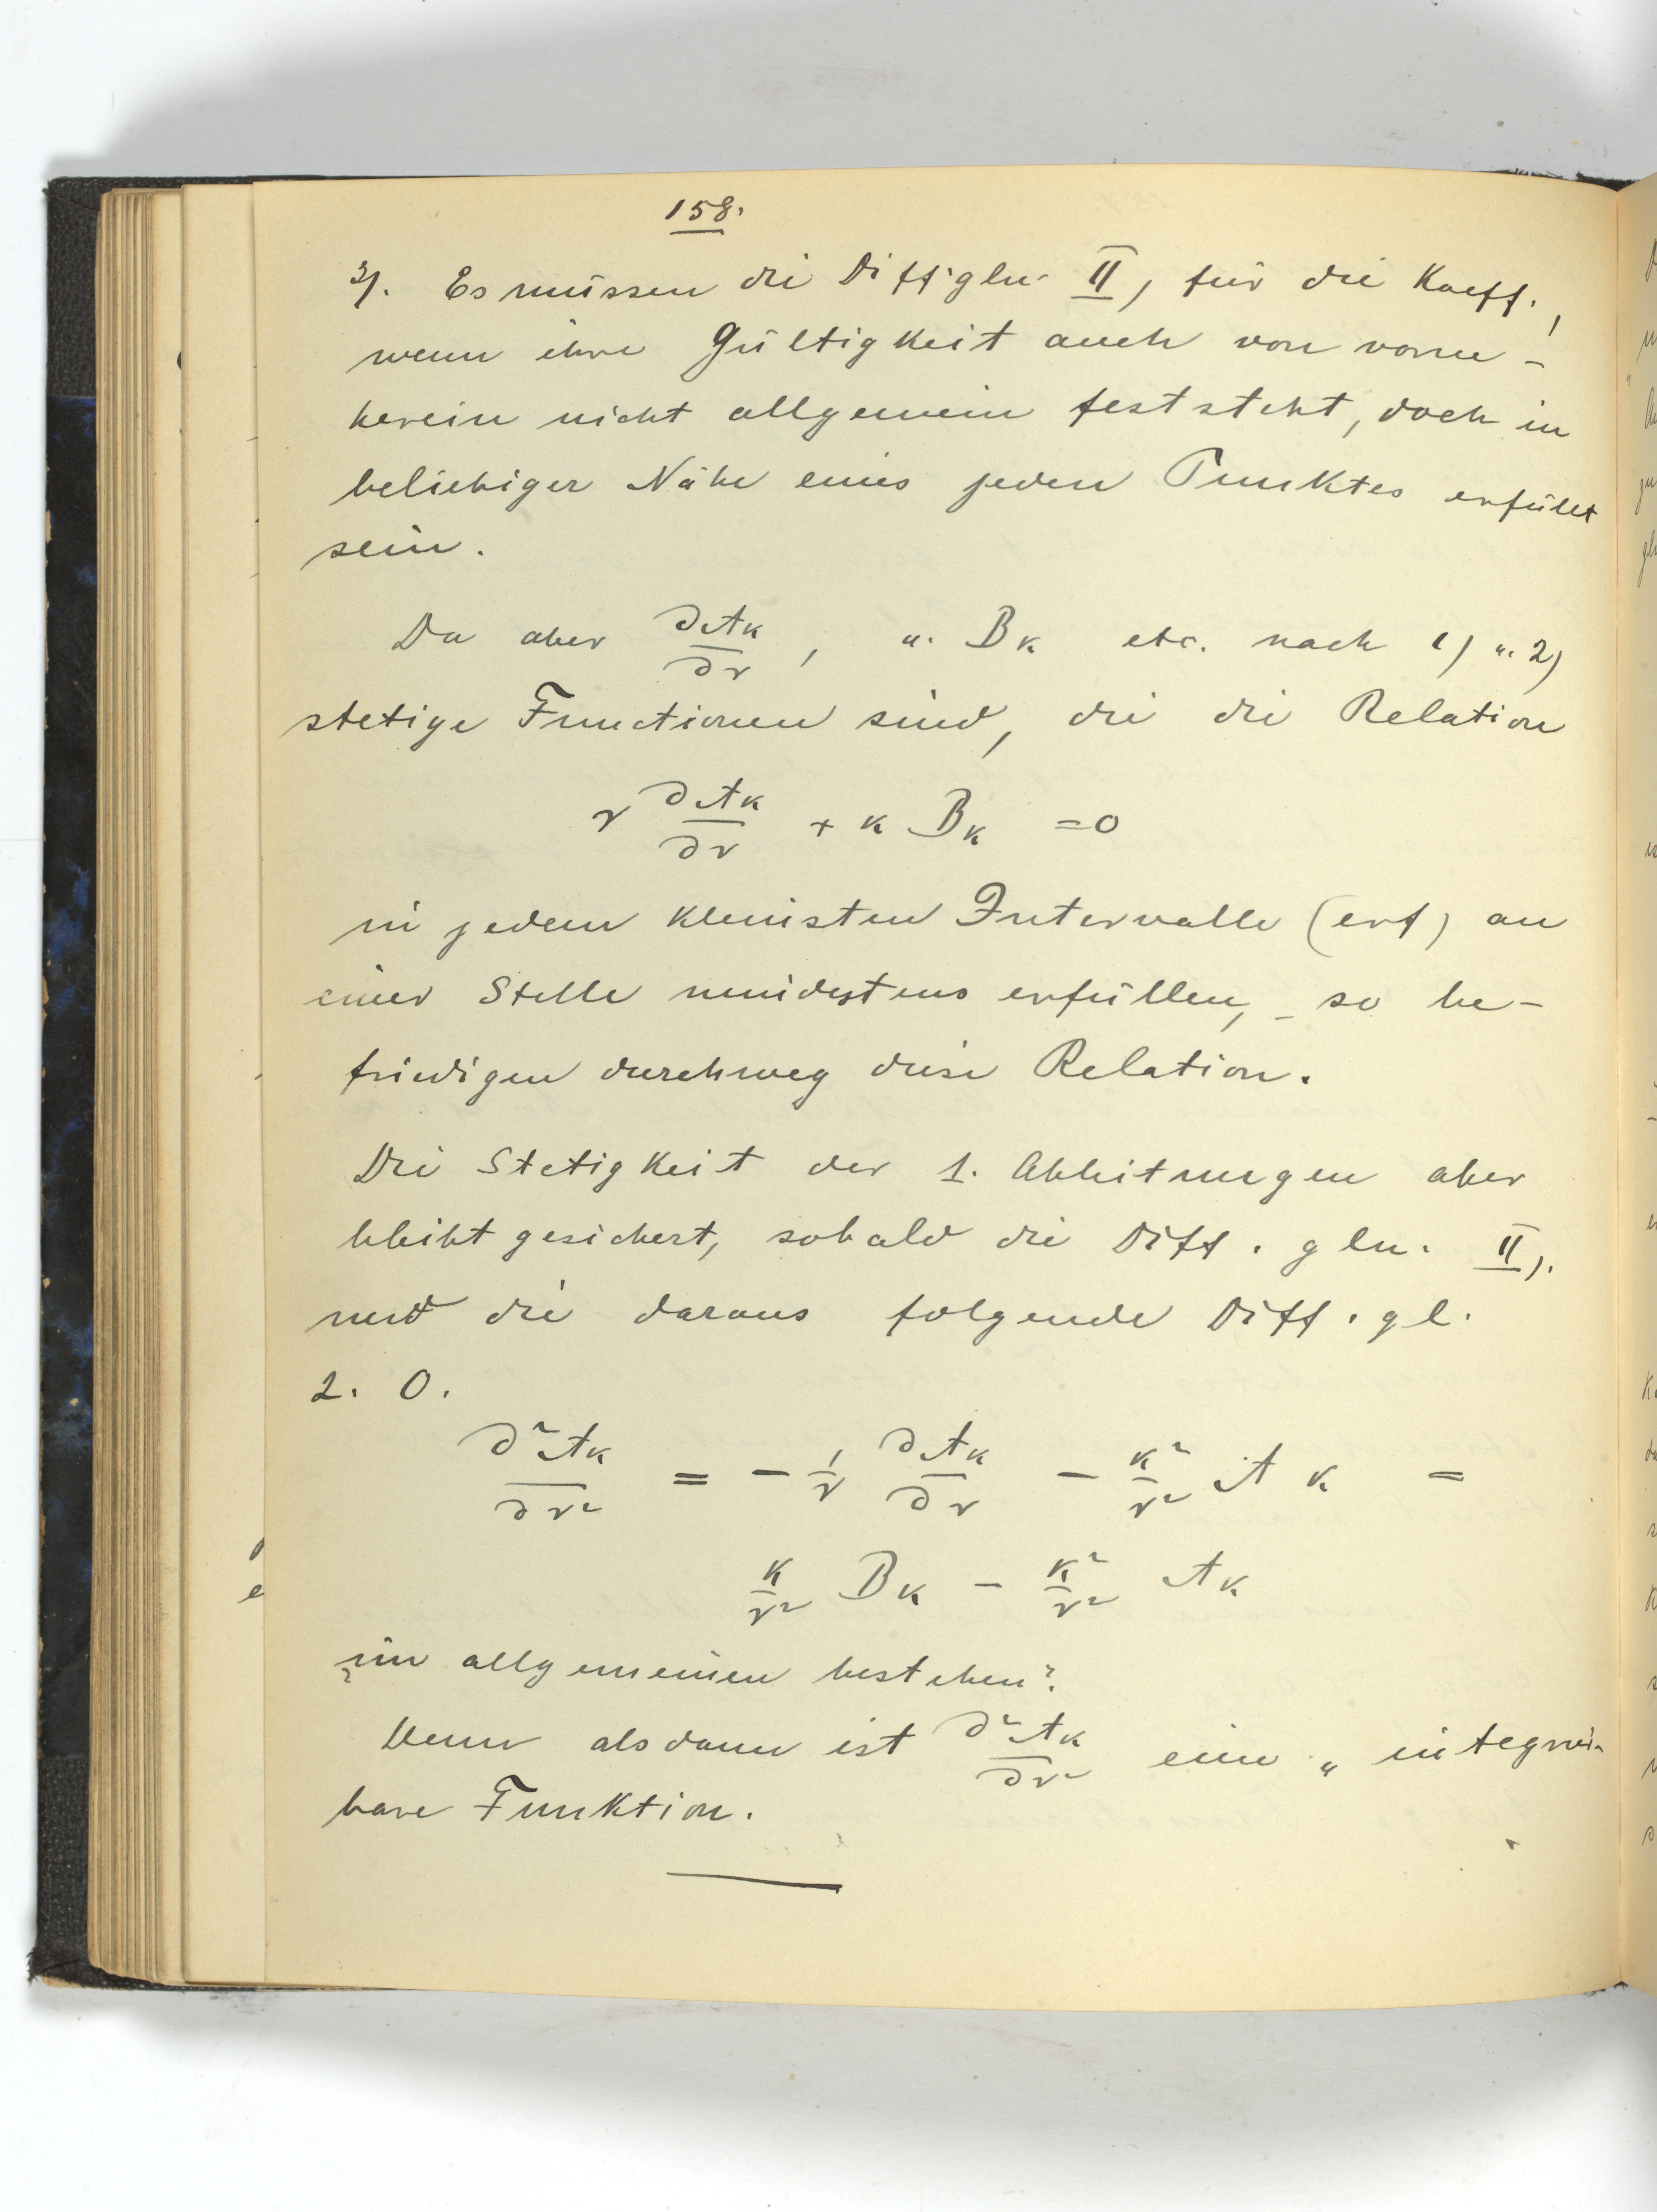 158.
3). Es müssen die Diffgln. II) für die Koeff.,
wenn ihre Gültigkeit auch von vorne-
herein nicht allgemein feststeht, doch in
beliebiger Nähe eines jeden Punktes erfüllt
sein.
Da aber ∂Ak/∂r, u. Bk etc. nach 1) u. 2)
stetige Functionen sind, die die Relation
r ∂Ak/∂r + k Bk = 0
in jedem kleinsten Intervalle (erf) an
einer Stelle mindestens erfüllen, - so be-
friedigen durchweg diese Relation.
Die Stetigkeit der 1. Ableitungen aber
bleibt gesichert, sobald die Diff. gln. II).
und die daraus folgende Diff. gl.
2. O.
∂²Ak/∂r² = - 1/r ∂Ak/∂r - k²/r² Ak =
k/r² Bk - k²/r² Ak
im allgemeinen bestehen?
Denn alsdann ist ∂²Ak/∂r² eine " integrir-
bare Funktion.